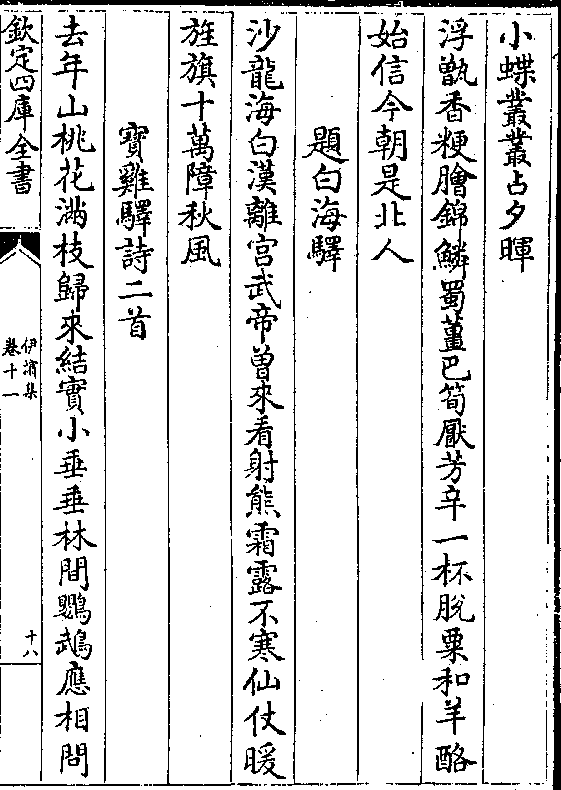 小蝶叢叢占夕暉
浮甑香粳膾錦鱗蜀薑巴筍厭芳辛一杯脫粟和羊酪
始信今朝是北人
題白海驛
沙龍海白漢離宫武帝曾來看射熊霜露不寒仙仗暖
旌旗十萬障秋風
寶雞驛詩二首
去年山桃花滿枝歸來結實小垂垂林間鸚鵡應相問
欽定四庫全書
伊濱集
卷十一
十八